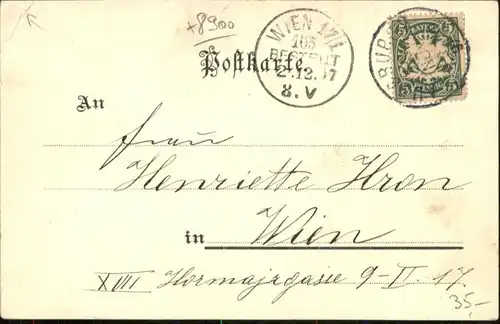 +8900
WIEN 17/1
BESTELLT
2.12.97
8.V
BAYERN
5 5
Postkarte.
An
Frau
Henriette Hron
in Wien
XVIII Hormayrgasse 9-II-17.
35,-